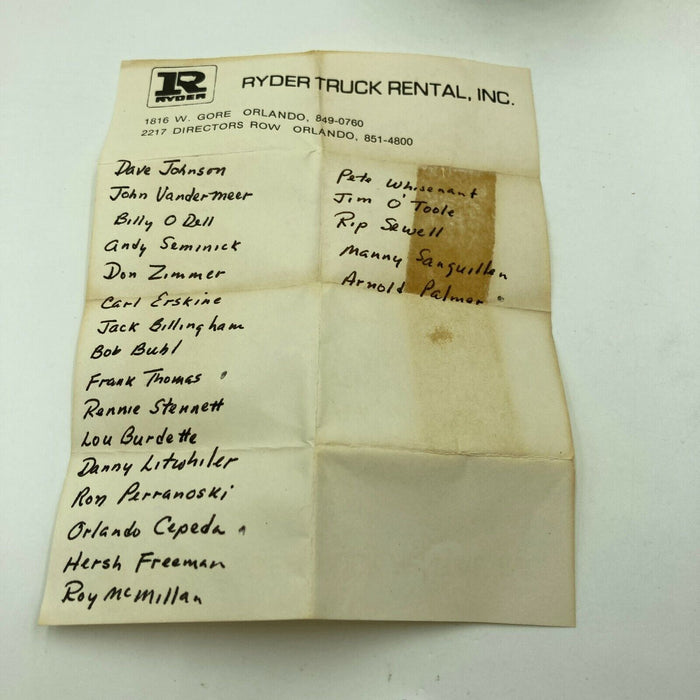 R
RYDER
RYDER TRUCK RENTAL, INC.
1816 W. GORE ORLANDO, 849-0760
2217 DIRECTORS ROW ORLANDO, 851-4800
Dave Johnson
John Vandermeer
Billy O Dell
Andy Seminick
Don Zimmer
Carl Erskine
Jack Billingham
Bob Buhl
Frank Thomas
Rennie Stennett
Lou Burdette
Danny Litwhiler
Ron Perranoski
Orlando Cepeda
Hersh Freeman
Roy McMillan
Pete Whisenant
Jim O'Toole
Rip Sewell
Manny Sanguillen
Arnold Palmer